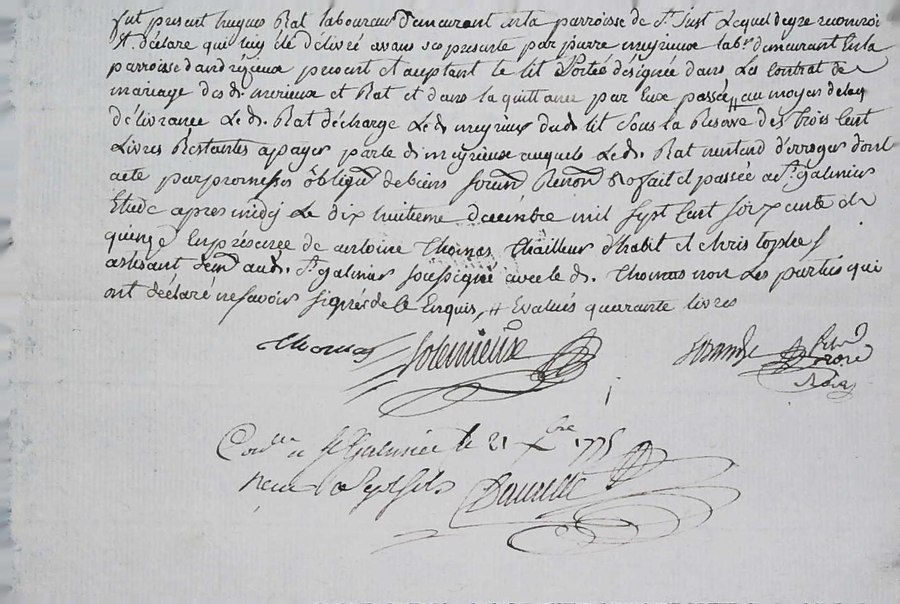 fut present hugues Rat laboureur demeurant en la parroisse de St. Just Lequel de gré reconnoi
et déclare qui luy été délivré avans ses presente par pierre meyrieux labr. demeurant en la
parroisse d'andrézieux present et aceptant le lit Portés désignée dans Les Contrat de
mariage des d. meyrieux et Rat et dans la quittance par Eux passée # au moyen de lad
délivrance Le d. Rat décharge Led. meyrieux dud. lit Sous la Reserve des trois Cent
Livres Restantes a payer par le d. meyrieux auquels Le d. Rat nentend déroger dont
acte par promesses obligon de biens Soumon Renon fait et passée a St. galmier
Etude apres midy Le dix huitieme decembre mil Sept Cent Soixante et
quinze En présence de antoine Thomas Thailleur d'habit et christophe
aud. St. galmier Soussigné avec le d. Thomas non Les parties qui
ont déclaré ne savoir signer de ce Enquis, # Evalués quarante livres
Thomas Solemieux
Conlle a St Galmier le 21 Xbre 1775
Receu Sept sols